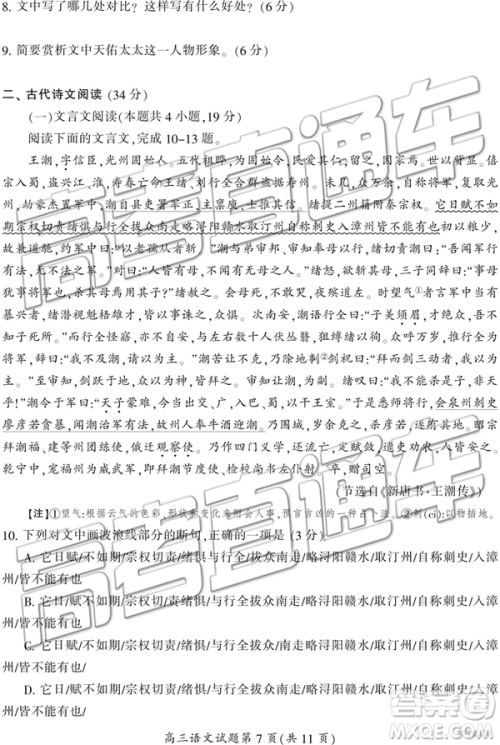 8. 文中写了哪几处对比？这样写有什么好处？(6分)
9. 简要赏析文中天佑太太这一人物形象。(6分)
二、古代诗文阅读(34分)
(一)文言文阅读(本题共4小题,19分)
阅读下面的文言文,完成10-13题。
王潮,字信臣,光州固始人。五代祖晔,为固始令,民爱其仁,留之,因家焉。世以赀显。僖
宗入蜀,盗兴江、淮,寿春亡命王绪、刘行全合群盗据寿州。未几,众万余,自称将军,复取光
州,劫豪杰置军中,潮自县史署军正,主禀庾,士推其信。绪提二州籍附秦宗权。它日赋不如
期宗权切责绪惧与行全拔众南走略浔阳赣水取汀州自称刺史入漳州皆不能有也初以粮少,
故兼道驰,约军中曰:“以老孺从者斩!”潮与弟审邦、审知奉母以行,绪切责潮曰:“吾闻军行
有法,无不法之军。”对曰:“人皆有母,不闻有无母之人。”绪怒,欲斩其母,三子同辞曰:“事母
犹事将军也,杀其母焉用其子?”绪赦之。会母死,不敢哭,夜殡道左。时望气①者言军中当有
暴兴者,绪潜视魁梧雄才,皆以事诛之,众惧。次南安,潮语行全曰:“子美须眉,才绝众,吾不
知子死所。”而行全怪寤,亦不自安,与左右数十人伏丛翳,狙缚绪以徇。众呼万岁,推行全为
将军,辞曰:“我不及潮,请以为主。”潮苦让不克,乃除地剚②剑祝曰:“拜而剑三动者,我以为
主。”至审知,剑跃于地,众以为神,皆拜之。审知让潮,自为副。绪叹曰:“我不能杀是子,非天
乎!”潮令于军曰:“天子蒙难,今当出交、广,入巴、蜀,以干王室。”于是悉师将行,会泉州刺史
廖彦若贪暴,闻潮治军有法,故州人奉牛酒迎潮。乃围城,岁余克之,杀彦若,遂有其地。
拜潮福、建等州团练使,俄迁观察使。乃作四门义学,还流亡,定赋敛,遣吏劝农,人皆安之。
乾宁中,宠福州为威武军,即拜潮节度使、检校尚书左仆射。卒,赠司空。
(节选自《新唐书·王潮传》)
[注]①望气:根据云气的色彩、形状和变化来附会人事,预言吉凶的一种方术。②剚(cì):以物插地。
10. 下列对文中画波浪线部分的断句,正确的一项是(3分)
A. 它日赋/不如期/宗权切责/绪惧/与行全拔众南走/略浔阳赣水/取汀州/自称刺史/入漳
州/皆不能有也
B. 它日/赋不如期/宗权切责/绪惧/与行全拔众南走/略浔阳赣水/取汀州/自称刺史/入漳
州/皆不能有也/
C. 它日赋/不如期/宗权切责/绪惧/与行全拔众南走/略浔阳赣水/取汀州/自称刺史/入漳
州/皆不能有也/
D. 它日/赋不如期/宗权切责/绪惧/与行全拔众南走/略浔阳赣水/取汀州/自称刺史/入漳
州/皆不能有也/
高三语文试题第7页(共11页)
高考直通车